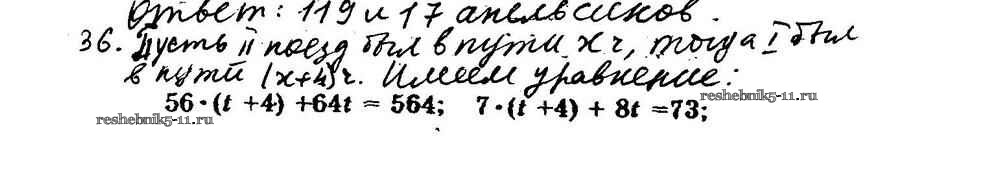 Ответ: 119 и 17 апельсинов.
36. Пусть II поезд был в пути x ч, тогда I был
в пути (x+4) ч. Имеем уравнение:
56·(t +4) +64t = 564; 7·(t +4) + 8t =73;
reshebnik5-11.ru
reshebnik5-11.ru